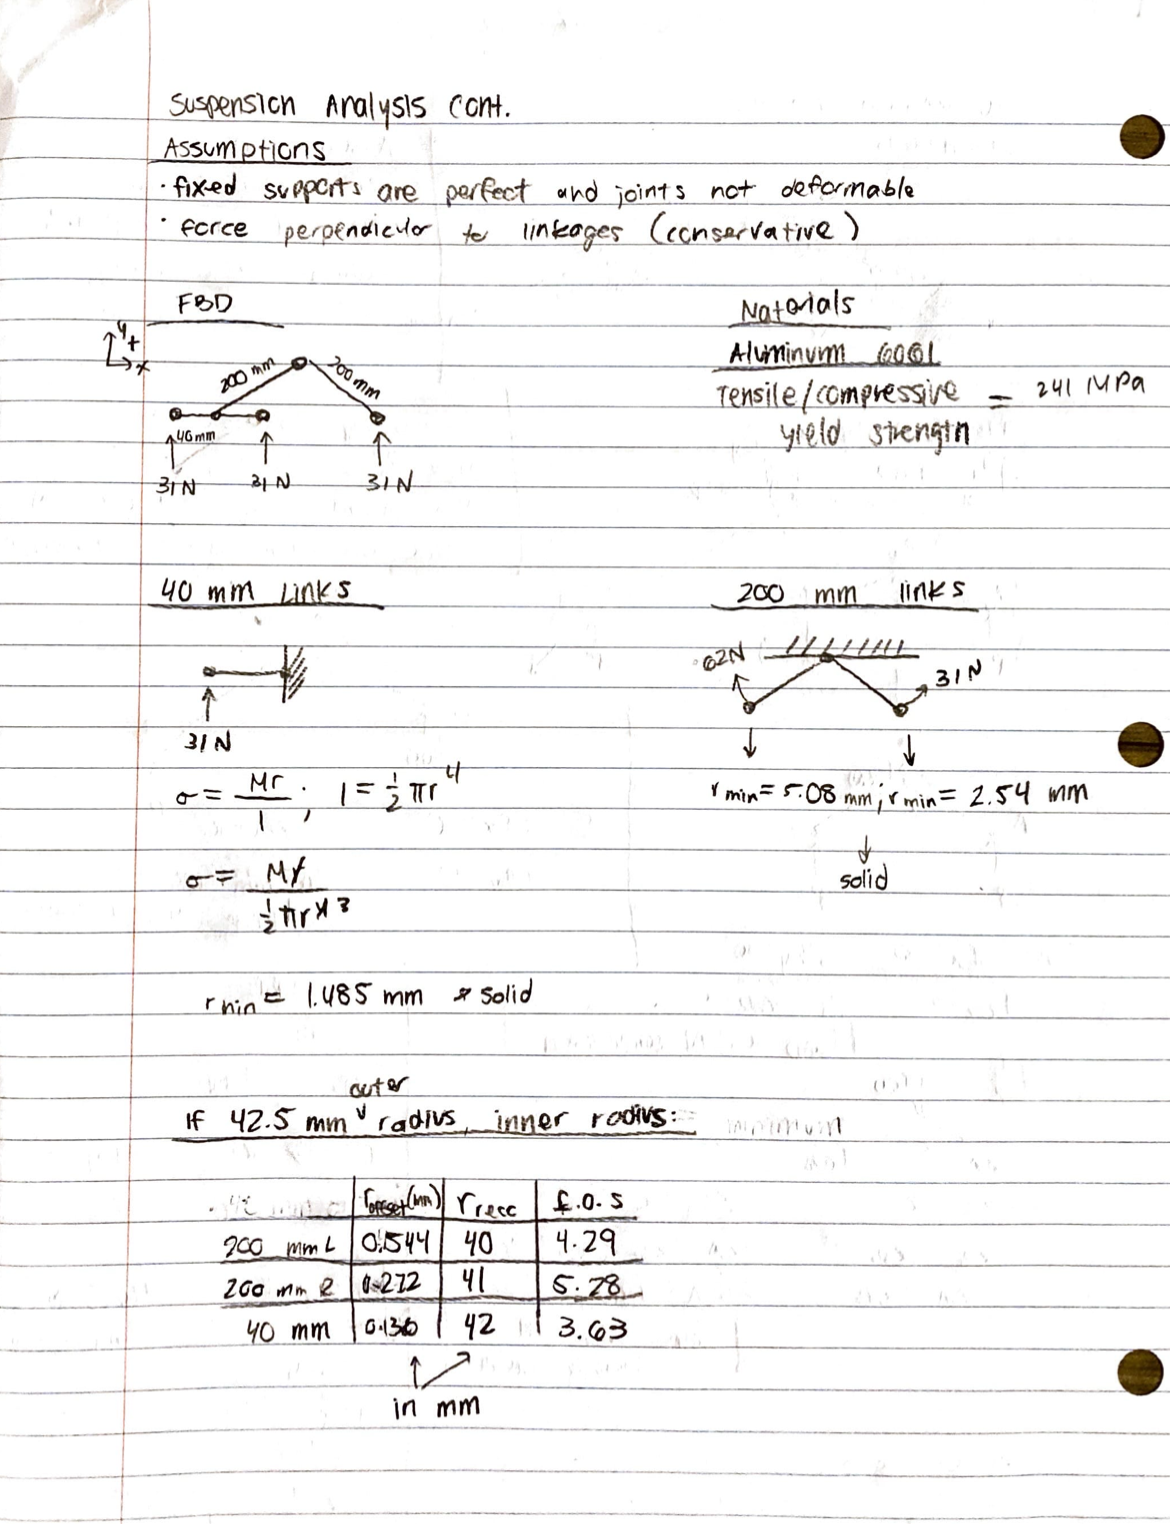 Suspension Analysis Cont.
Assumptions
· fixed supports are perfect and joints not deformable
· force perpendicular to linkages (conservative)
FBD
y+
x
200 mm
200 mm
40mm
31N
31N
31N
Materials
Aluminum 6061
Tensile/compressive = 241 MPa
yield strength
40 mm Links
31N
σ = Mr/I ; I = ½πr⁴
σ = Mr/½πr⁴ 3
rmin = 1.485 mm * solid
200 mm links
62N
31N
rmin = 5.08 mm; rmin = 2.54 mm
solid
outer
If 42.5 mm radius, inner radius:
roffset(mm) rrecc f.o.s
200 mm L 0.544 40 4.29
200 mm R 0.272 41 5.78
40 mm 0.136 42 3.63
in mm